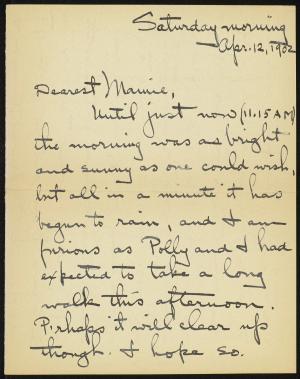 Saturday morning
Apr. 12, 1902
Dearest Mamie,
Until just now (11.15 A.M)
the morning was as bright
and sunny as one could wish,
but all in a minute it has
begun to rain, and I am
furious as Polly and I had
expected to take a long
walk this afternoon.
Perhaps it will clear up
though. I hope so.